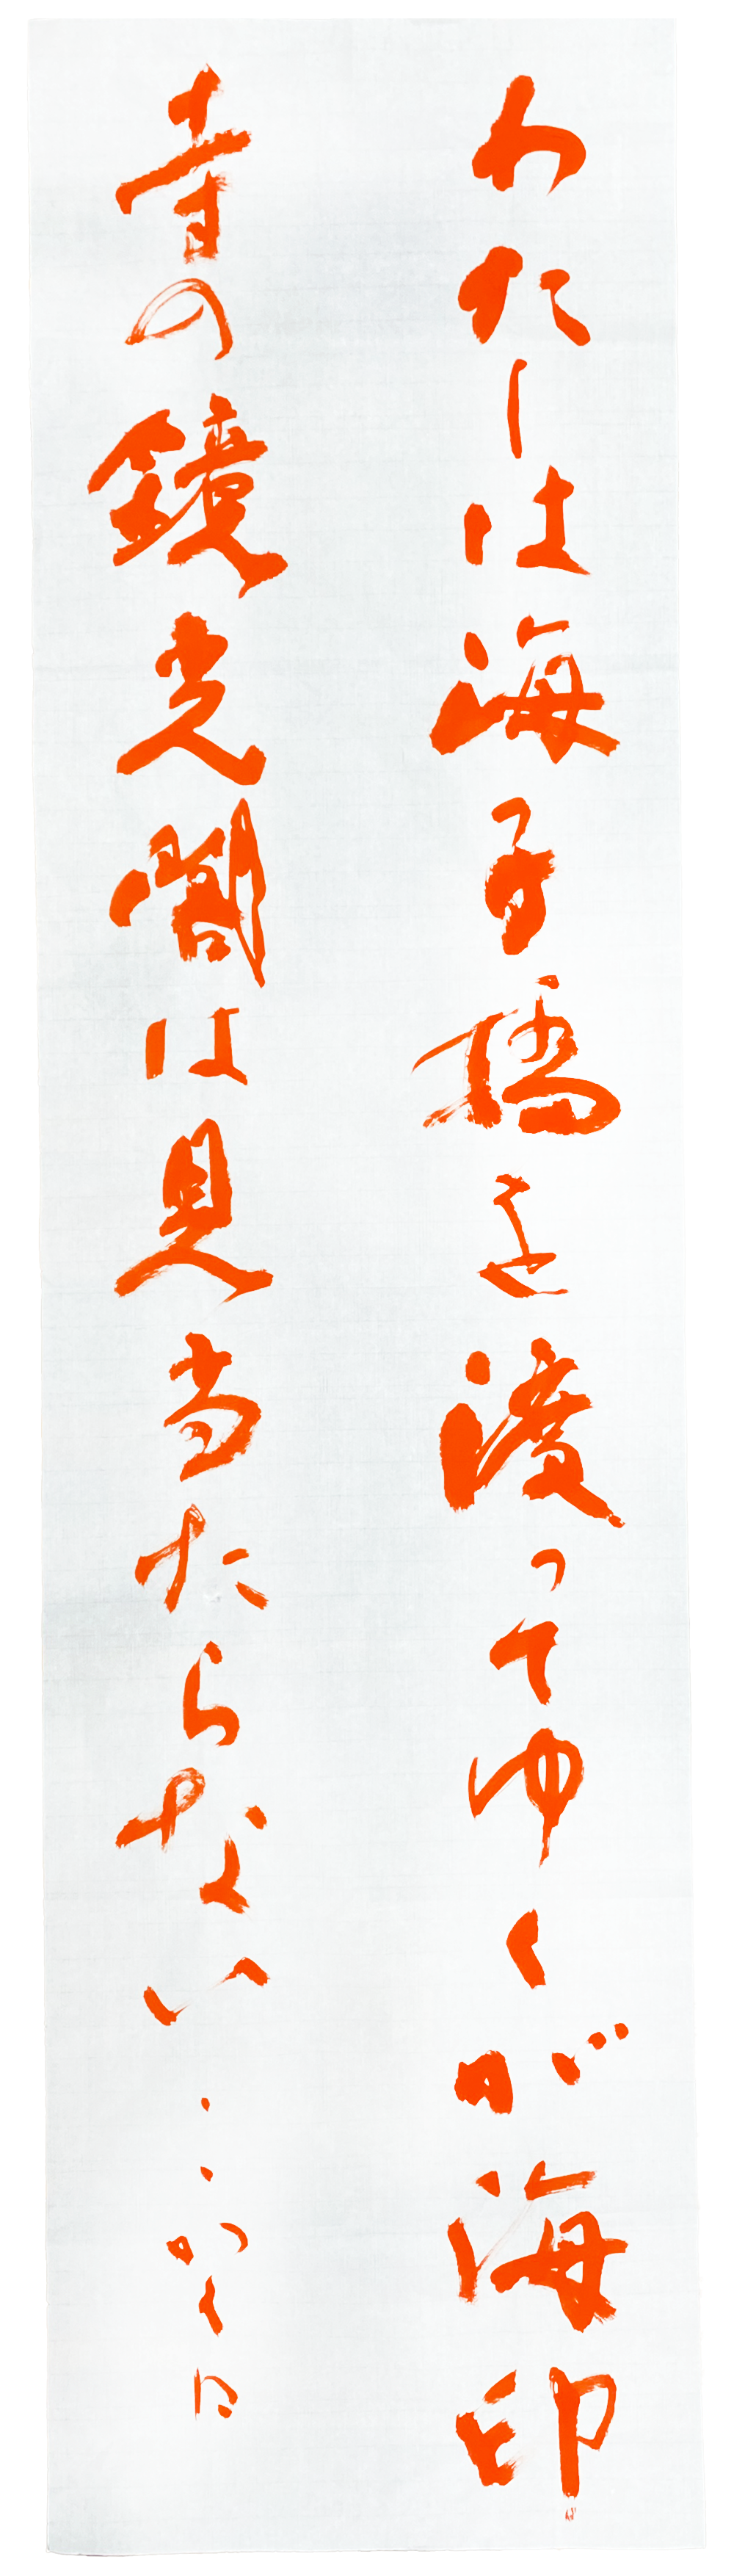 わたしは海子橋を渡ってゆくが海印
寺の鏡光閣は見当たらない・・かくに